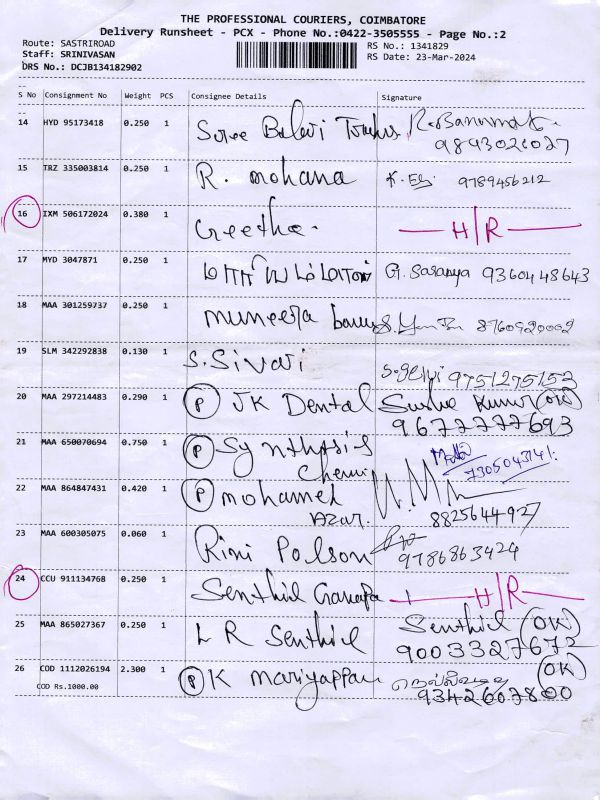 THE PROFESSIONAL COURIERS, COIMBATORE
Delivery Runsheet - PCX - Phone No.:0422-3505555 - Page No.:2
Route: SASTRIROAD
RS No.: 1341829
Staff: SRINIVASAN
RS Date: 23-Mar-2024
DRS No.: DCJB134182902
S No Consignment No Weight PCS Consignee Details Signature
14 HYD 95173418 0.250 1 Sree Balaji
15 TRZ 335003814 0.250 1 R. mohana 9789456212
16 IXM 506172024 0.380 1 Geetha. H/R
17 MYD 3047871 0.250 1 G. Saranya 9360448643
18 MAA 301259737 0.250 1 muneera 8760920002
19 SLM 342292838 0.130 1 S. Sivari S. Selvi 9751275152
20 MAA 297214483 0.290 1 (P) JK Dental Kumar (OK)
9677777693
21 MAA 650070694 0.750 1 (P) Synthasis
Chemi 7305043141
22 MAA 864847431 0.420 1 (P) mohamed
Azar. 8825644927
23 MAA 600305075 0.060 1 Rini Polson 9786863424
24 CCU 911134768 0.250 1 Senthil Ganapa H/R
25 MAA 865027367 0.250 1 L R Senthil Senthil (OK)
9003327672
26 COD 1112026194 2.300 1 (P) K mariyappan (OK)
COD Rs.1000.00 9342607800